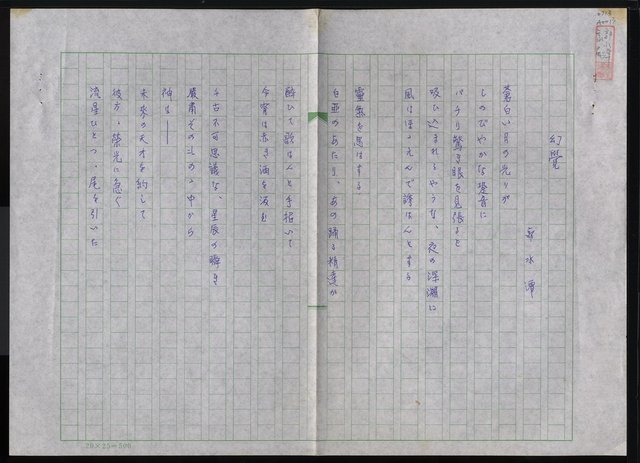 幻覺
水潭
蒼白い月の光りが
しのびやかな跫音に
パチリ驚き眼を見張ると
吸ひ込まれるやうな、夜の深瀬に
風はほゝえんで誘はんとする
靈氣を思はする
白亜のあたり、あの踊る精達が
酔ひて歌はんと手招いて
今宵は赤き酒を汲む
千古不可思議な、星辰の瞬き
嚴肅そのものゝ中から
神は──
未來の天才を約して
彼方、榮光に急ぐ
流星ひとつ、尾を引いた
20×25=500